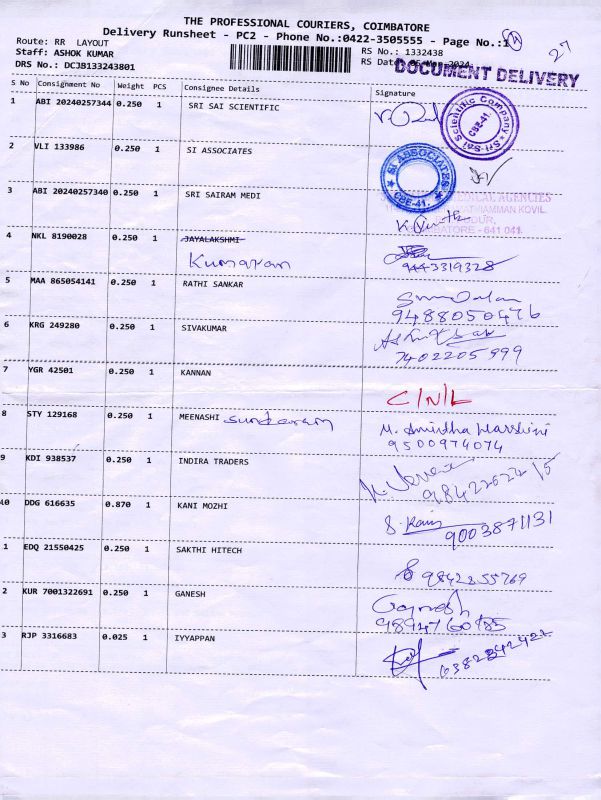 THE PROFESSIONAL COURIERS, COIMBATORE
Delivery Runsheet - PC2 - Phone No.:0422-3505555 - Page No.:1
27
Route: RR LAYOUT
Staff: ASHOK KUMAR
DRS No.: DCJB133243801
RS No.: 1332438
RS Date: 05-Mar-2024
DOCUMENT DELIVERY
S No Consignment No Weight PCS Consignee Details Signature
1 ABI 20240257344 0.250 1 SRI SAI SCIENTIFIC
Sri Sai Scientific Company CBE-41.
2 VLI 133986 0.250 1 SI ASSOCIATES
SI ASSOCIATES CBE-41.
3 ABI 20240257340 0.250 1 SRI SAIRAM MEDI
MEDICAL AGENCIES
KOVIL
COIMBATORE - 641 041.
4 NKL 8190028 0.250 1 JAYALAKSHMI
Kumaran
9443319328
5 MAA 865054141 0.250 1 RATHI SANKAR
9488050476
6 KRG 249280 0.250 1 SIVAKUMAR
7402205999
7 YGR 42501 0.250 1 KANNAN
C/N/L
8 STY 129168 0.250 1 MEENASHI Sundaram
M. Amirtha Harshini
9500974074
9 KDI 938537 0.250 1 INDIRA TRADERS
10 DDG 616635 0.870 1 KANI MOZHI
S. Kani
9003871131
1 EDQ 21550425 0.250 1 SAKTHI HITECH
9842355769
2 KUR 7001322691 0.250 1 GANESH
Ganesh
3 RJP 3316683 0.025 1 IYYAPPAN
6382342422